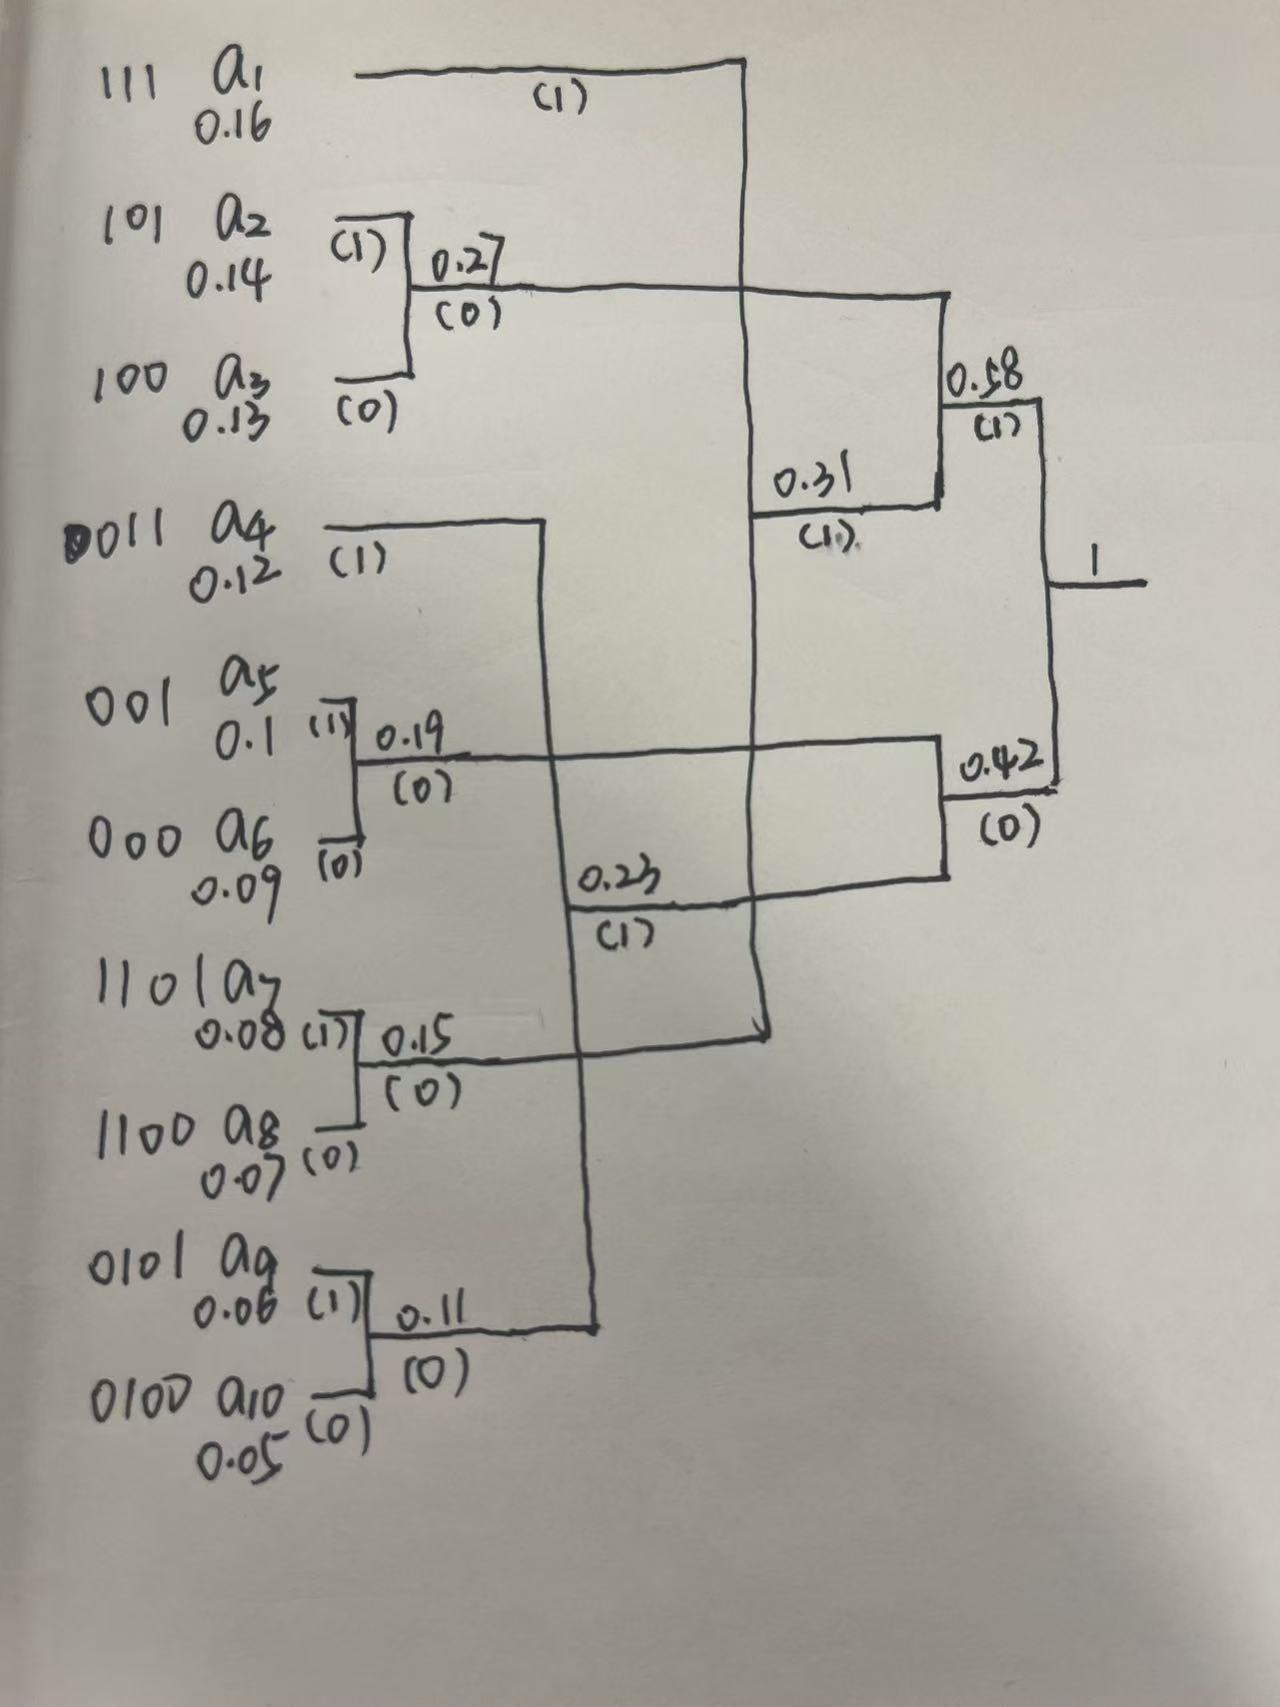 111 a1
(1)
0.16
101 a2
(1) 0.27
0.14
(0)
100 a3
0.13 (0)
0.58
(1)
0.31
(1)
0011 a4
0.12 (1)
1
001 a5
0.1 (1) 0.19
(0)
0.42
(0)
000 a6
0.09 (0)
0.23
(1)
1101 a7
0.08 (1) 0.15
(0)
1100 a8
0.07 (0)
0101 a9
0.06 (1) 0.11
(0)
0100 a10
0.05 (0)